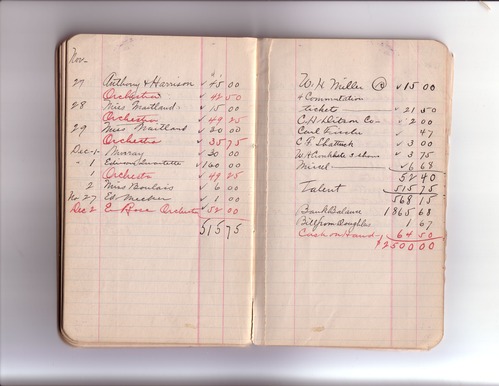 Nov
27 Anthony & Harrison √ 45 00
Orchestra √ 42 50
28 Miss Maitland √ 15 00
Orchestra √ 49 25
29 Miss Maitland √ 20 00
Orchestra √ 35 75
Dec 1 Murray √ 20 00
" 1 Edwin √ 160 00
1 Orchestra √ 49 25
2 Miss √ 6 00
No 27 Ed. √ 1 00
Dec 2 E Rose Orchestra √ 52 00
515 75
W. H. Miller √ 15 00
& Commutation
tickets √ 21 50
C. H. Ditson Co √ 2 00
Carl Fischer √ 47
C. F. Shattuck √ 3 00
√ 3 75
Miscel √ 6 68
52 40
Talent 515 75
568 15
Bank Balance 1865 68
Bill from 1 67
Cash on Hand 64 50
$2500 00